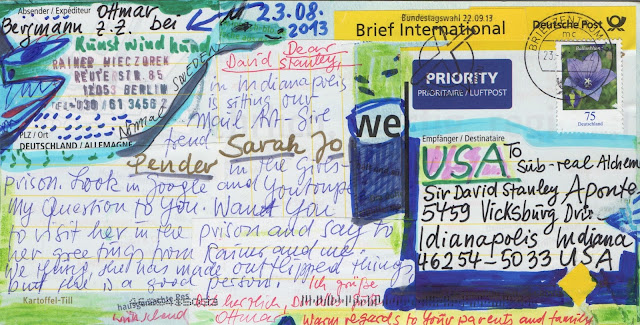 Absender / Expéditeur
Ottmar
Bergmann z. Z. bei
23.08.
2013
Kunst wind hand
RAINER WIECZOREK
REUTERSTR. 85
12053 BERLIN
TEL 030/61 3456 2
PLZ / Ort
DEUTSCHLAND / ALLEMAGNE
Normal SWEDEN
Bundestagswahl 22.09.13
Deutsche Post
Brief International
BRIEFZENTRUM
mc
23.
PRIORITY
PRIORITAIRE / LUFTPOST
75
Deutschland
Dear
David Stanley,
in Indianapolis
is sitting our
Mail Art-Give
friend
Sarah Jo
Pender
in the Girls-
prison. Look in Google and Youtoupe
My Question to You. Want You
to visit her in the prison and say to
her greetings from Rainer and me
We thing, she has made outflipped things
but she is a good person.
Ich grüße
herzlich,
Ottmar
Warm regards to Your parents and family
Kartoffel-Till
we
Empfänger / Destinataire
USA
To
Sub-real Alchem
Sir David Stanley Aponte
5459 Vicksburg Driv
Idianapolis Indiana
46254-5033 USA